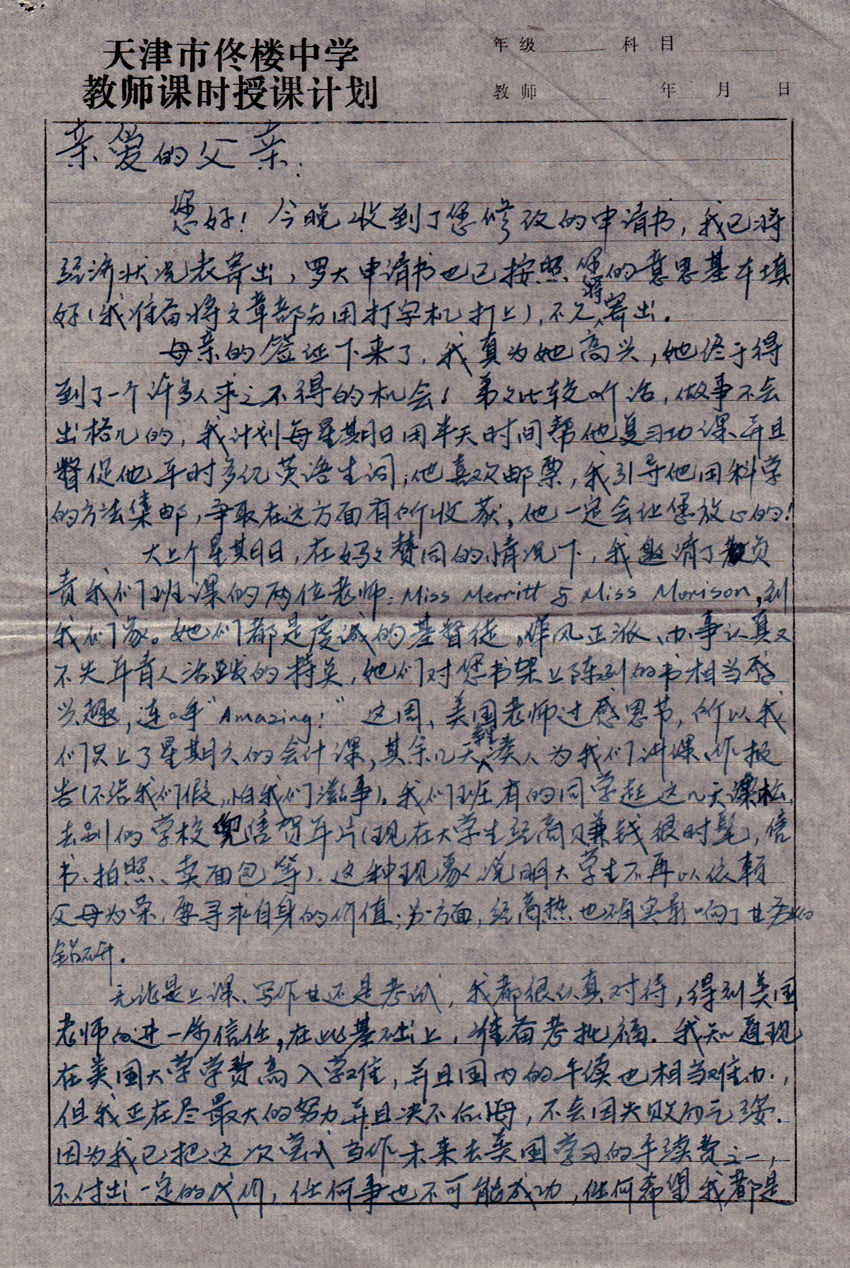 天津市佟楼中学
教师课时授课计划
年级 科目
教师 年 月 日
亲爱的父亲:
您好!今晚收到了您修改的申请书,我已将
经济状况表寄出,罗大申请书也已按照您的意思基本填
好(我准备将文章部分用打字机打上),不久将寄出。
母亲的签证下来了,我真为她高兴,她终于得
到了一个许多人求之不得的机会!弟弟比较听话,做事不会
出格儿的,我计划每星期日用半天时间帮他复习功课并且
督促他平时多记英语生词;他喜欢邮票,我引导他用科学
的方法集邮,争取在这方面有所收获,他一定会让您放心的!
大上个星期日,在妈妈赞同的情况下,我邀请了负
责我们班课的两位老师:Miss Merritt与Miss Morison,到
我们家。她们都是虔诚的基督徒,作风正派、办事认真又
不失年青人活跃的特点,她们对您书架上陈列的书相当感
兴趣,连呼"Amazing!" 这周,美国老师过感恩节,所以我
们只上了星期六的会计课,其余几天 请人为我们讲课、作报
告(不给我们假,怕我们滋事)。我们班有的同学趁这几天课松,
去别的学校 贺年片(现在大学生经商赚钱很时髦,借
书、拍照、卖面包等)。这种现象说明大学生不再以依赖
父母为荣,要寻求自身的价值;另一方面,经商热也确实影响了其 的
钻研。
无论是上课、写作业还是考试,我都很认真对待,得到美国
老师的进一步信任,在此基础上,准备考托福。我知道现
在美国大学学费高入学难,并且国内的手续也相当难办,
但我正在尽最大的努力并且决不后悔,不会因失败而气馁。
因为我已把这次尝试当作未来去美国学习的手续费之一,
不付出一定的代价,任何事也不可能成功,任何希望我都是